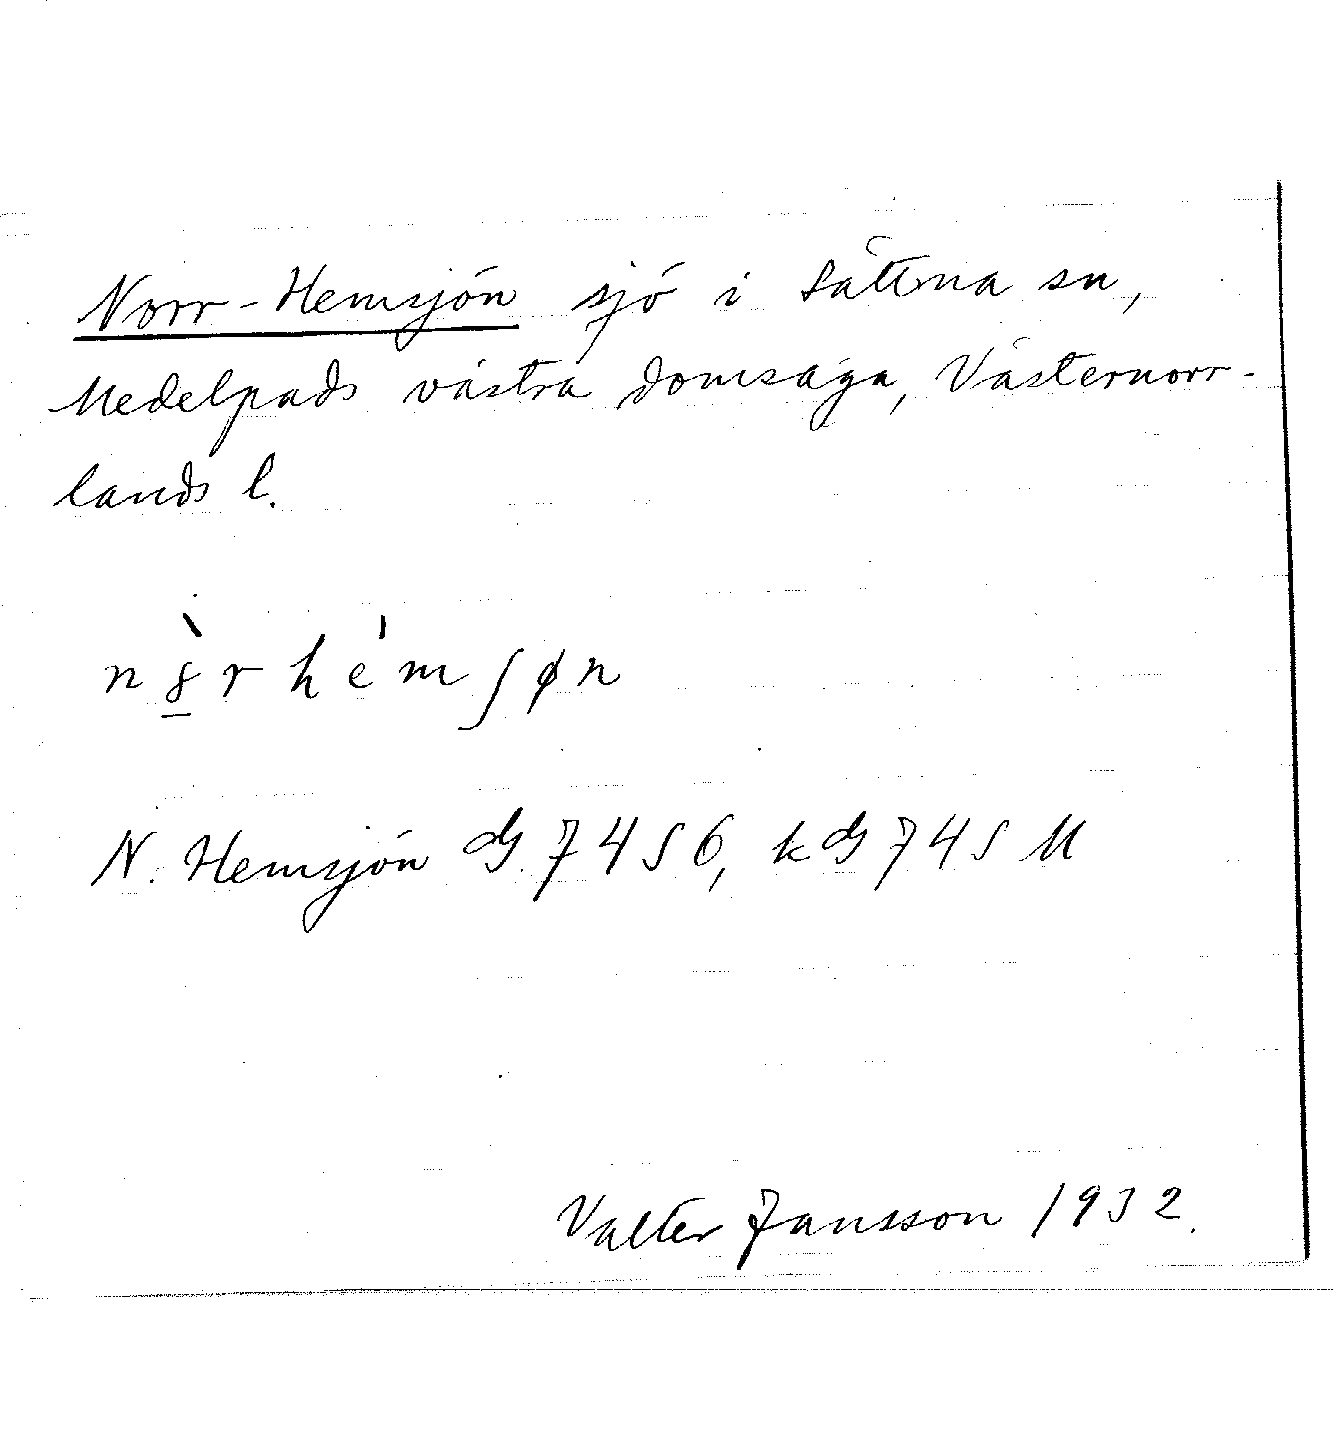 Norr-Hemsjön sjö i Sättna sn,
Medelpads västra domsaga, Västernorr-
lands l.
N. Hemsjön dg 7456, k dg 745 M
Valter Jansson 1932.